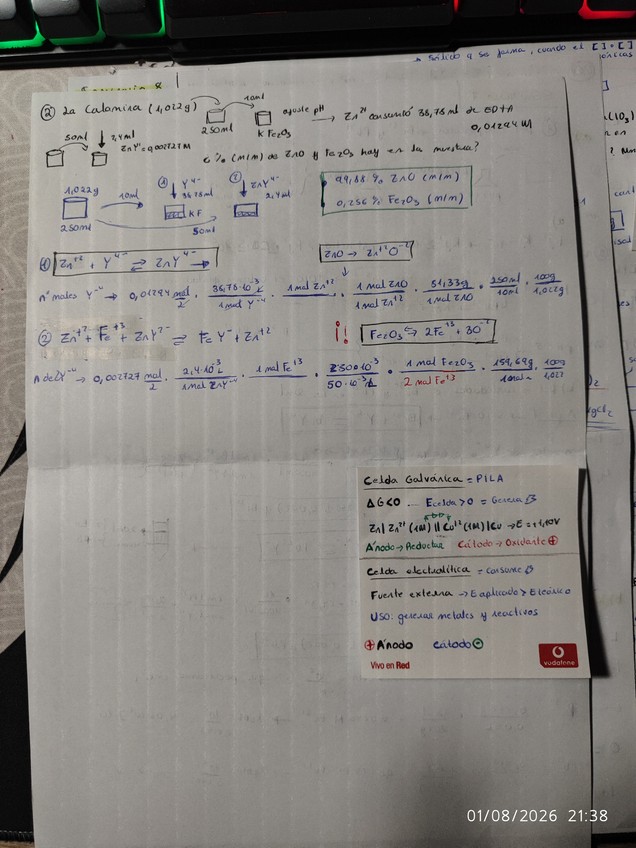 ② La Calamina (1,022g)
10ml
250ml
K Fe₂O₃
ajuste pH
→ Zn²⁺ consumió 38,78 ml de EDTA
0,01294 M
50ml
2,4ml
ZnY⁼=0,002727M
¿ % (m/m) de ZnO y Fe₂O₃ hay en la muestra?
1,022g
250ml
10ml
① Y⁴⁻
38,78ml
KF
② ZnY²⁻
2,4ml
50ml
99,88 % ZnO (m/m)
0,256 % Fe₂O₃ (m/m)
① Zn⁺² + Y⁴⁻ ⇌ ZnY⁴⁻
ZnO → Zn⁺²O⁻²
nº moles Y⁻⁴ → 0,01294 mol/L · 38,78·10⁻³ L/1 mol Y⁻⁴ · 1 mol Zn⁺² · 1 mol ZnO/1 mol Zn⁺² · 81,33g/1 mol ZnO · 250ml/10ml · 100g/1,022g
② Zn⁺² + Fe⁺³ + ZnY²⁻ ⇌ FeY⁻ + Zn⁺²
¡! Fe₂O₃ ⇆ 2Fe⁺³ + 3O⁻²
→ 0,002727 mol/L · 2,4·10⁻³ L/1 mol ZnY⁻² · 1 mol Fe⁺³ · 250·10⁻³/50·10⁻³ L · 1 mol Fe₂O₃/2 mol Fe⁺³ · 159,69g · 100g/1,022
Celda Galvánica = PILA
ΔG<0 . Ecelda>0 = Genera
Zn| Zn²⁺ (1M) || Cu⁺² (1M) | Cu → E = +1,10V
Ánodo → Reductor Cátodo → Oxidante ⊕
Celda electrolítica = consume
Fuente externa → E aplicado > E teórico
USO: generar metales y reactivos
⊕ Ánodo cátodo ⊖
Vivo en Red
vodafone
01/08/2026 21:38